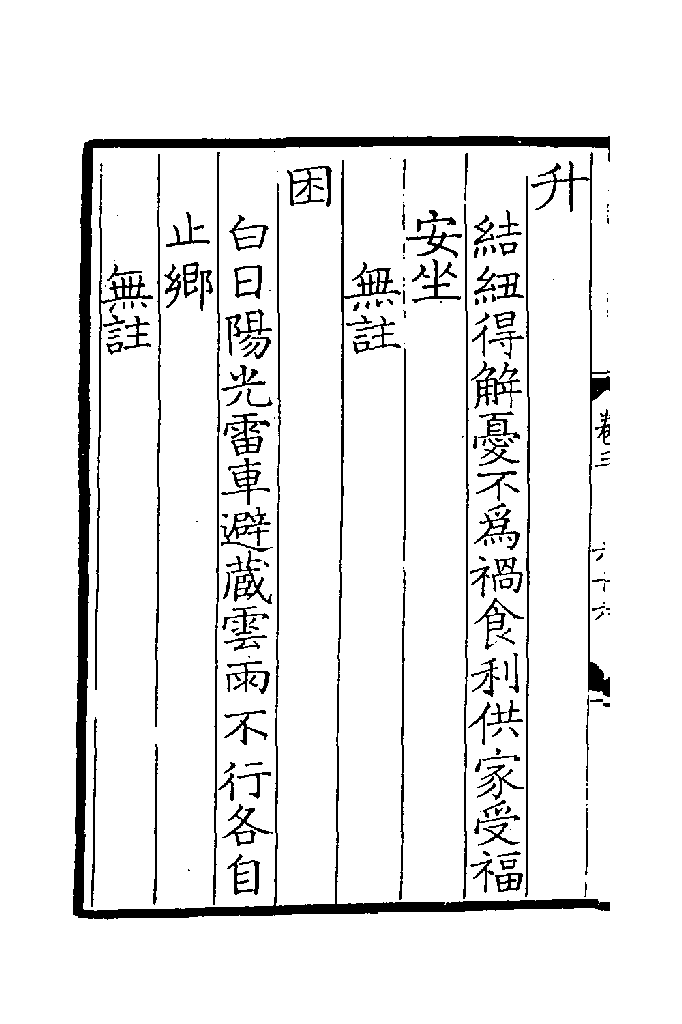 升
結紐得解憂不爲禍食利供家受福
安坐
無註
困
白日陽光雷車避藏雲雨不行各自
止鄉
無註
卷三
六十六